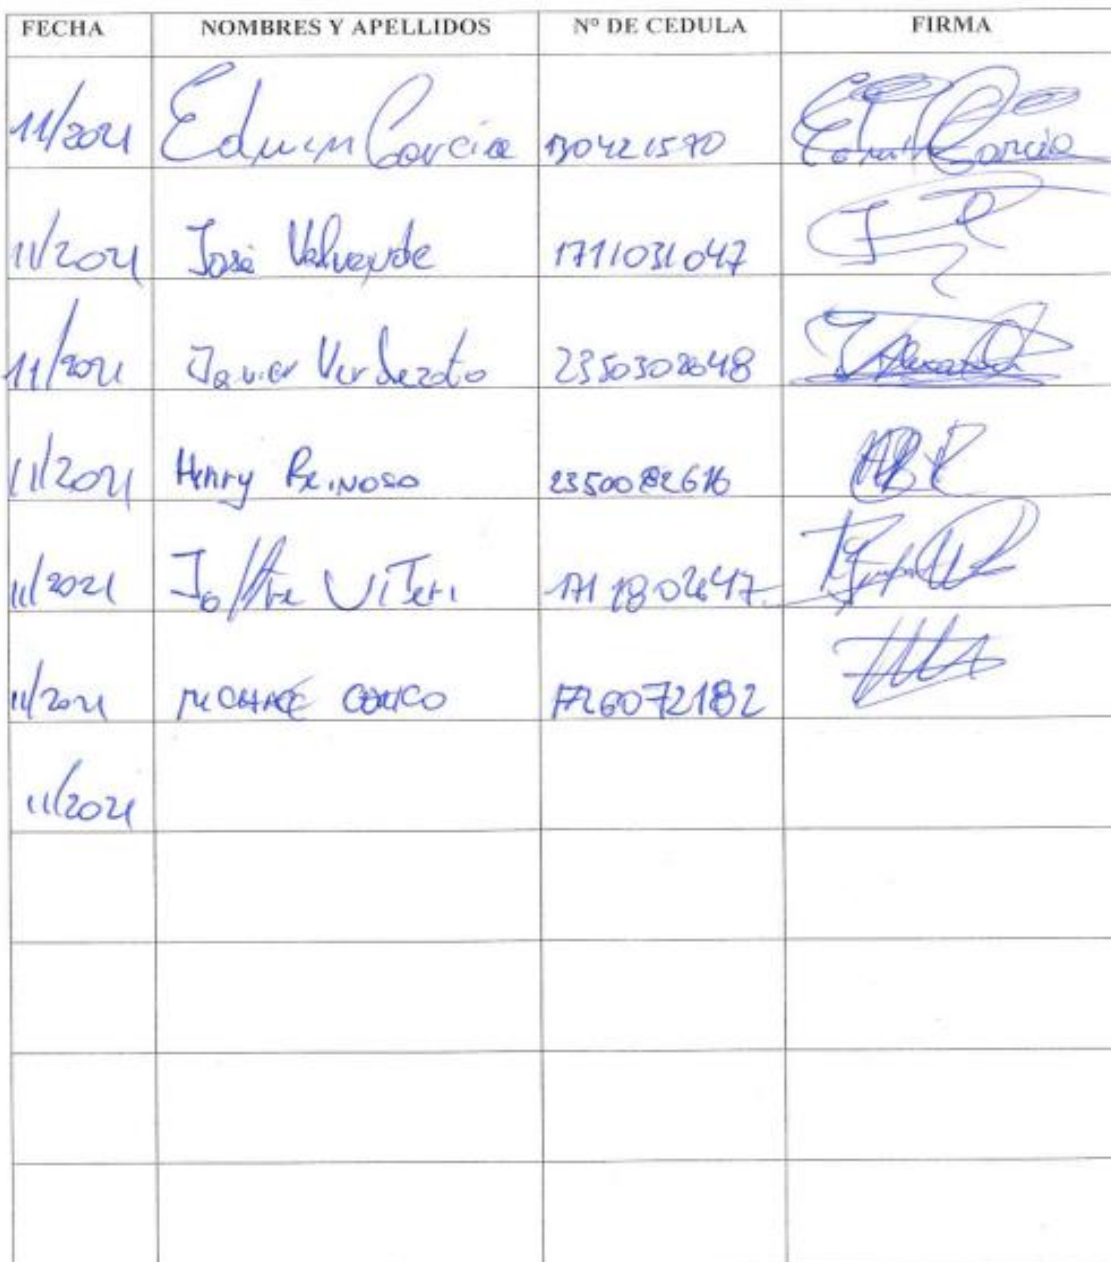 FECHA NOMBRES Y APELLIDOS Nº DE CEDULA FIRMA
11/2021 Edwin Garcia 130421570 Garcia
11/2021 José Valverde 1711031047
11/2021 Javier Verdezoto 2350302648
11/2021 Henry Reinoso 2350082616
11/2021 Joffre Viteri 1711802647
11/2021 1726072182
11/2021